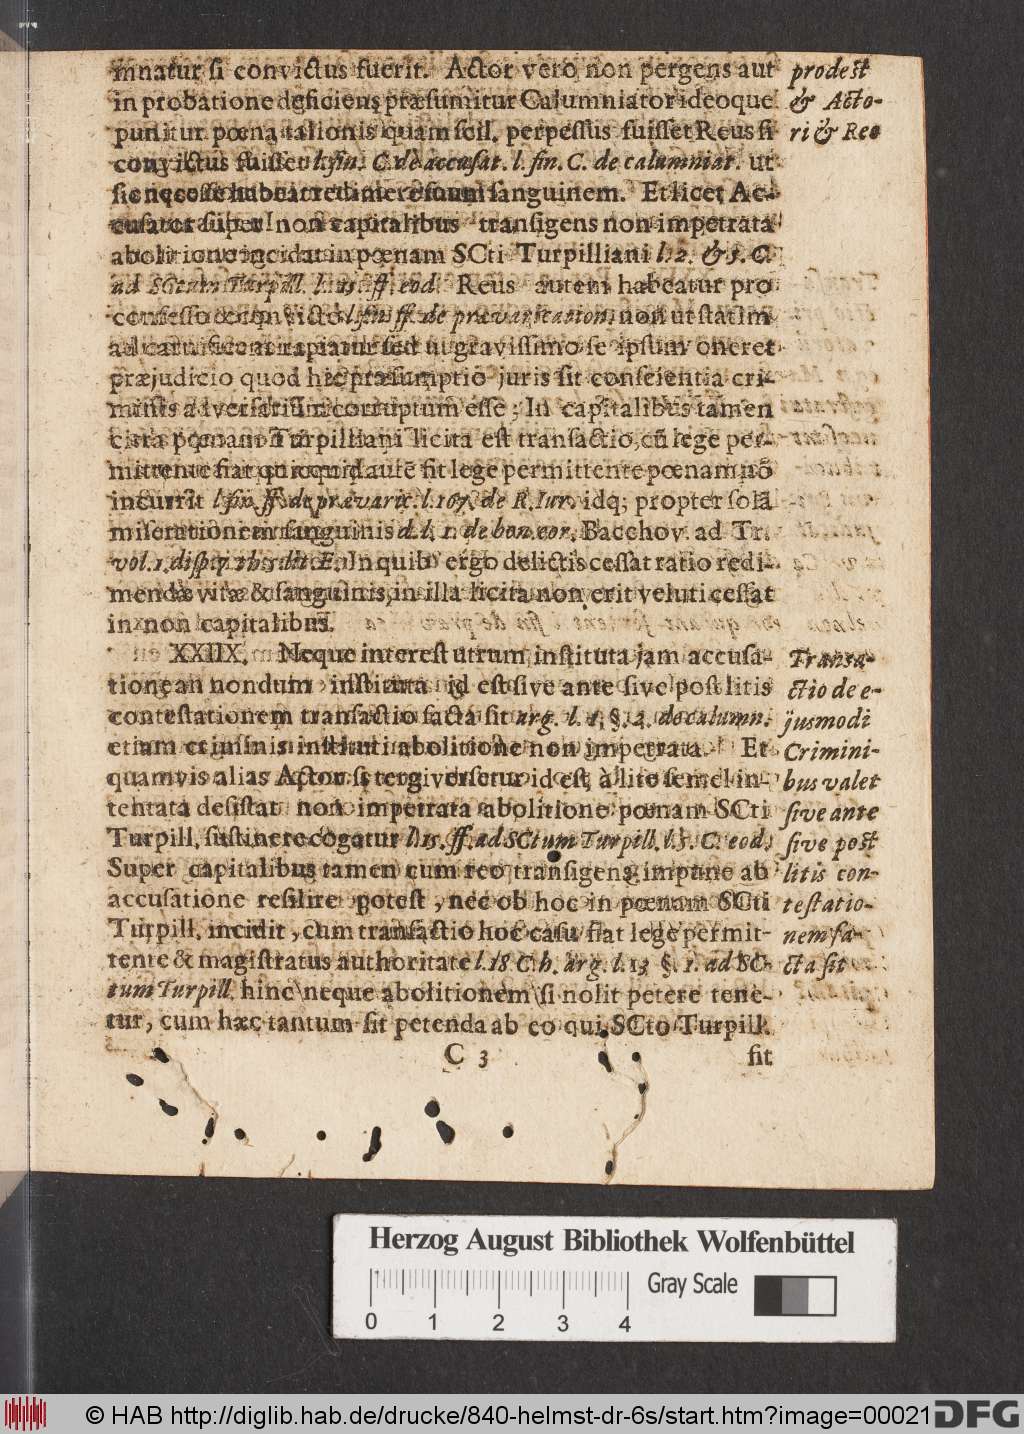 mnatur ſi convictus fuerit. Actor vero non pergens aut
in probatione deficiens præſumitur Calumniator ideoque
punitur pœna talionis quam ſcil. perpeſſus fuiſſet Reus ſi
convictus fuiſſet l. fin. C. de accuſat. l. fin. C. de calumniat. ut
ſic neceſſe habeat redimere ſuum ſanguinem. Et licet Ac-
cuſator ſuper non capitalibus tranſigens non impetrata
abolitione incidat in pœnam SCti Turpilliani l. 2. & 3. C.
ad SCtum Turpill. l. 15. ff. eod. Reus autem habeatur pro
confeſſo & convicto l. fin ff. de prævarication. non ut ſtatim
ad carnificem rapiatur ſed ut graviſſimo ſe ipſum oneret
præjudicio quod hic præſumptio juris ſit conſcientia cri-
minis adverſarium corruptum eſſe; In capitalibus tamen
citra pœnam Turpilliani licita eſt tranſactio, cũ lege per-
mittente fiat quicquid autẽ fit lege permittente pœnam nõ
incurrit l. fin. ff. de prævaric. l. 167. de R. Iur. idq; propter ſolã
miſerationem ſanguinis d. l. 1. de bon. eor. Bacchov. ad Tr.
vol. 1. diſp. E. In quib9 ergo delictis ceſſat ratio redi-
mendæ vitæ & ſanguinis, in illa licita non erit veluti ceſſat
in non capitalibus.
XXIIX. Neque intereſt utrum inſtituta jam accuſa-
tione an nondum inſtituta id eſt ſive ante ſive poſt litis
conteſtationem tranſactio facta ſit arg. l. 1. §. 2. de calumn.
etiam criminis inſtituti abolitione non impetrata. Et
quamvis alias Actor ſi tergiverſetur id eſt, à lite ſemel in-
tentata deſiſtat non impetrata abolitione pœnam SCti
Turpill. ſuſtinere cogatur l. 15. ff. ad SCtum Turpill. l. 3. C. eod.
Super capitalibus tamen cum reo tranſigens impune ab
accuſatione reſilire poteſt, nec ob hoc in pœnam SCti
Turpill. incidit, cum tranſactio hoc caſu fiat lege permit-
tente & magiſtratus authoritate l. 18 C. h. arg. l. 13 §. 1. ad SC-
tum Turpill. hinc neque abolitionem ſi nolit petere tene-
tur, cum hæc tantum ſit petenda ab eo qui SCto Turpill.
C 3 ſit
prodeſt
& Acto-
ri & Reo
Tranſa-
ctio de e-
jusmodi
Crimini-
bus valet
ſive ante
ſive poſt
litis con-
teſtatio-
nem fa-
cta ſit
Herzog August Bibliothek Wolfenbüttel
Gray Scale
0 1 2 3 4
© HAB http://diglib.hab.de/drucke/840-helmst-dr-6s/start.htm?image=00021
DFG